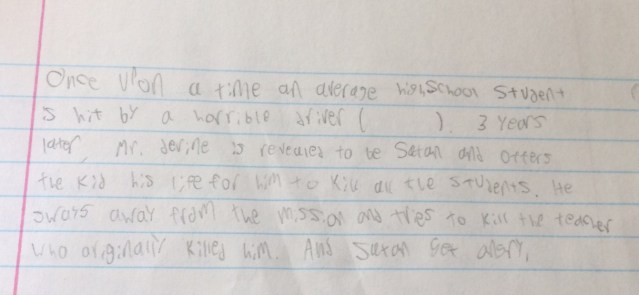 Once upon a time an average highschool student
is hit by a horrible driver (        ). 3 years
later, Mr. Jerine is revealed to be Satan and offers
the kid his life for him to kill all the students. He
sways away from the mission and tries to kill the teacher
who originally killed him. And Satan get angry.